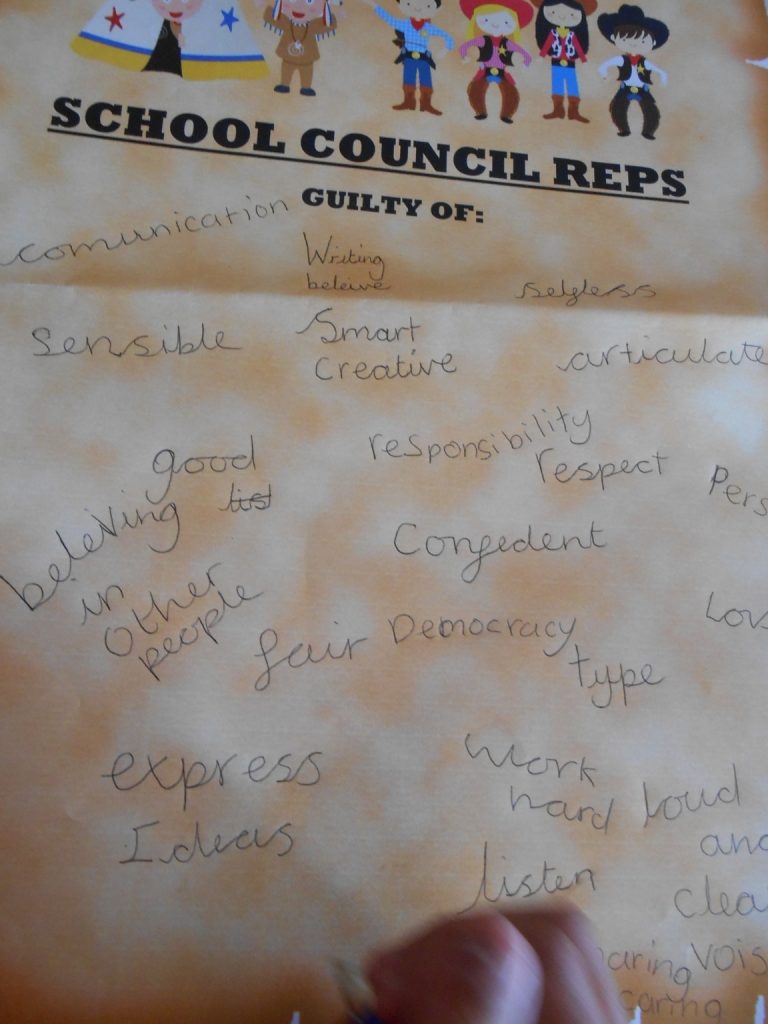 SCHOOL COUNCIL REPS
GUILTY OF:
comunication
Writing
beleive
selgless
Sensible
Smart
Creative
articulate
good
list
responsibility
respect
Pers
beleiving
in
Other
people
Congedent
Lov
fair
Democracy
type
express
Ideas
work
hard
loud
and
clea
vois
listen
haring
caring